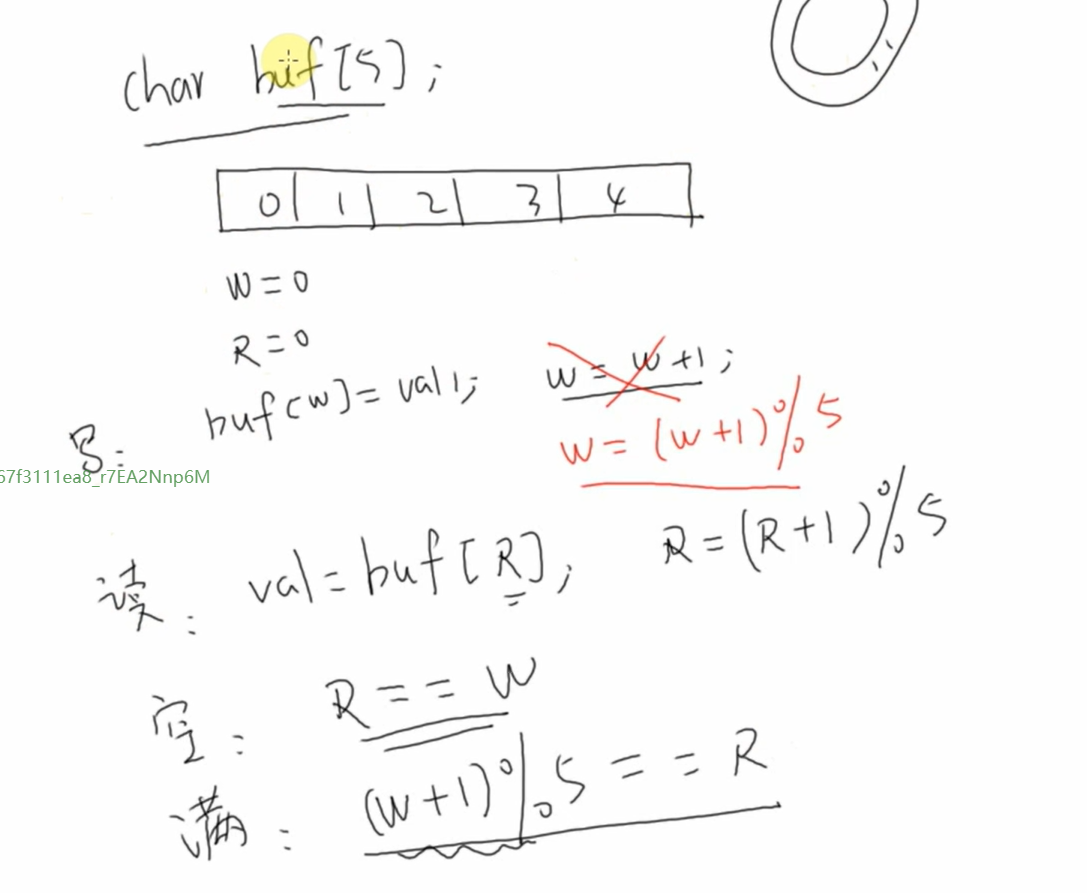 char buf[5];
0 1 2 3 4
W=0
R=0
写: buf[w]=val1; w=w+1;
w=(w+1)%5
67f3111ea8_r7EA2Nnp6M
读: val=buf[R]; R=(R+1)%5
空: R==W
满: (W+1)%5==R